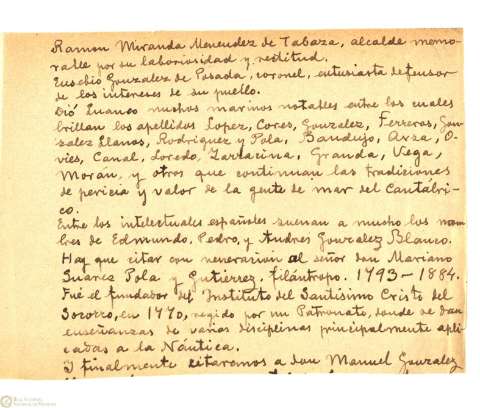 Ramon Miranda Menendez de Tabaza, alcalde memo-
rable por su laboriosidad y rectitud.
Eusebio Gonzalez de Posada, coronel, entusiasta defensor
de los intereses de su pueblo.
Dió Luanco muchos marinos notables entre los cuales
brillan los apellidos Lopez, Cores, Gonzalez, Ferreros, Gon-
zalez Llanos, Rodriguez y Pola, Bandujo, Arza, O-
vies, Canal, Loredo, Zarracina, Granda, Vega,
Morán, y otros que continuan las tradiciones
de pericia y valor de la gente de mar del Cantábri-
co.
Entre los intelectuales españoles suenan a mucho los nom-
bres de Edmundo, Pedro, y Andres Gonzalez Blanco.
Hay que citar con veneración al señor don Mariano
Suarez Pola y Gutiérrez, filántropo. 1793-1884.
Fué el fundador del Instituto del Santisimo Cristo del
Socorro, en 1770, regido por un Patronato, donde se dan
enseñanzas de varias disciplinas principalmente apli-
cadas a la Náutica.
I finalmente citaremos a don Manuel Gonzalez